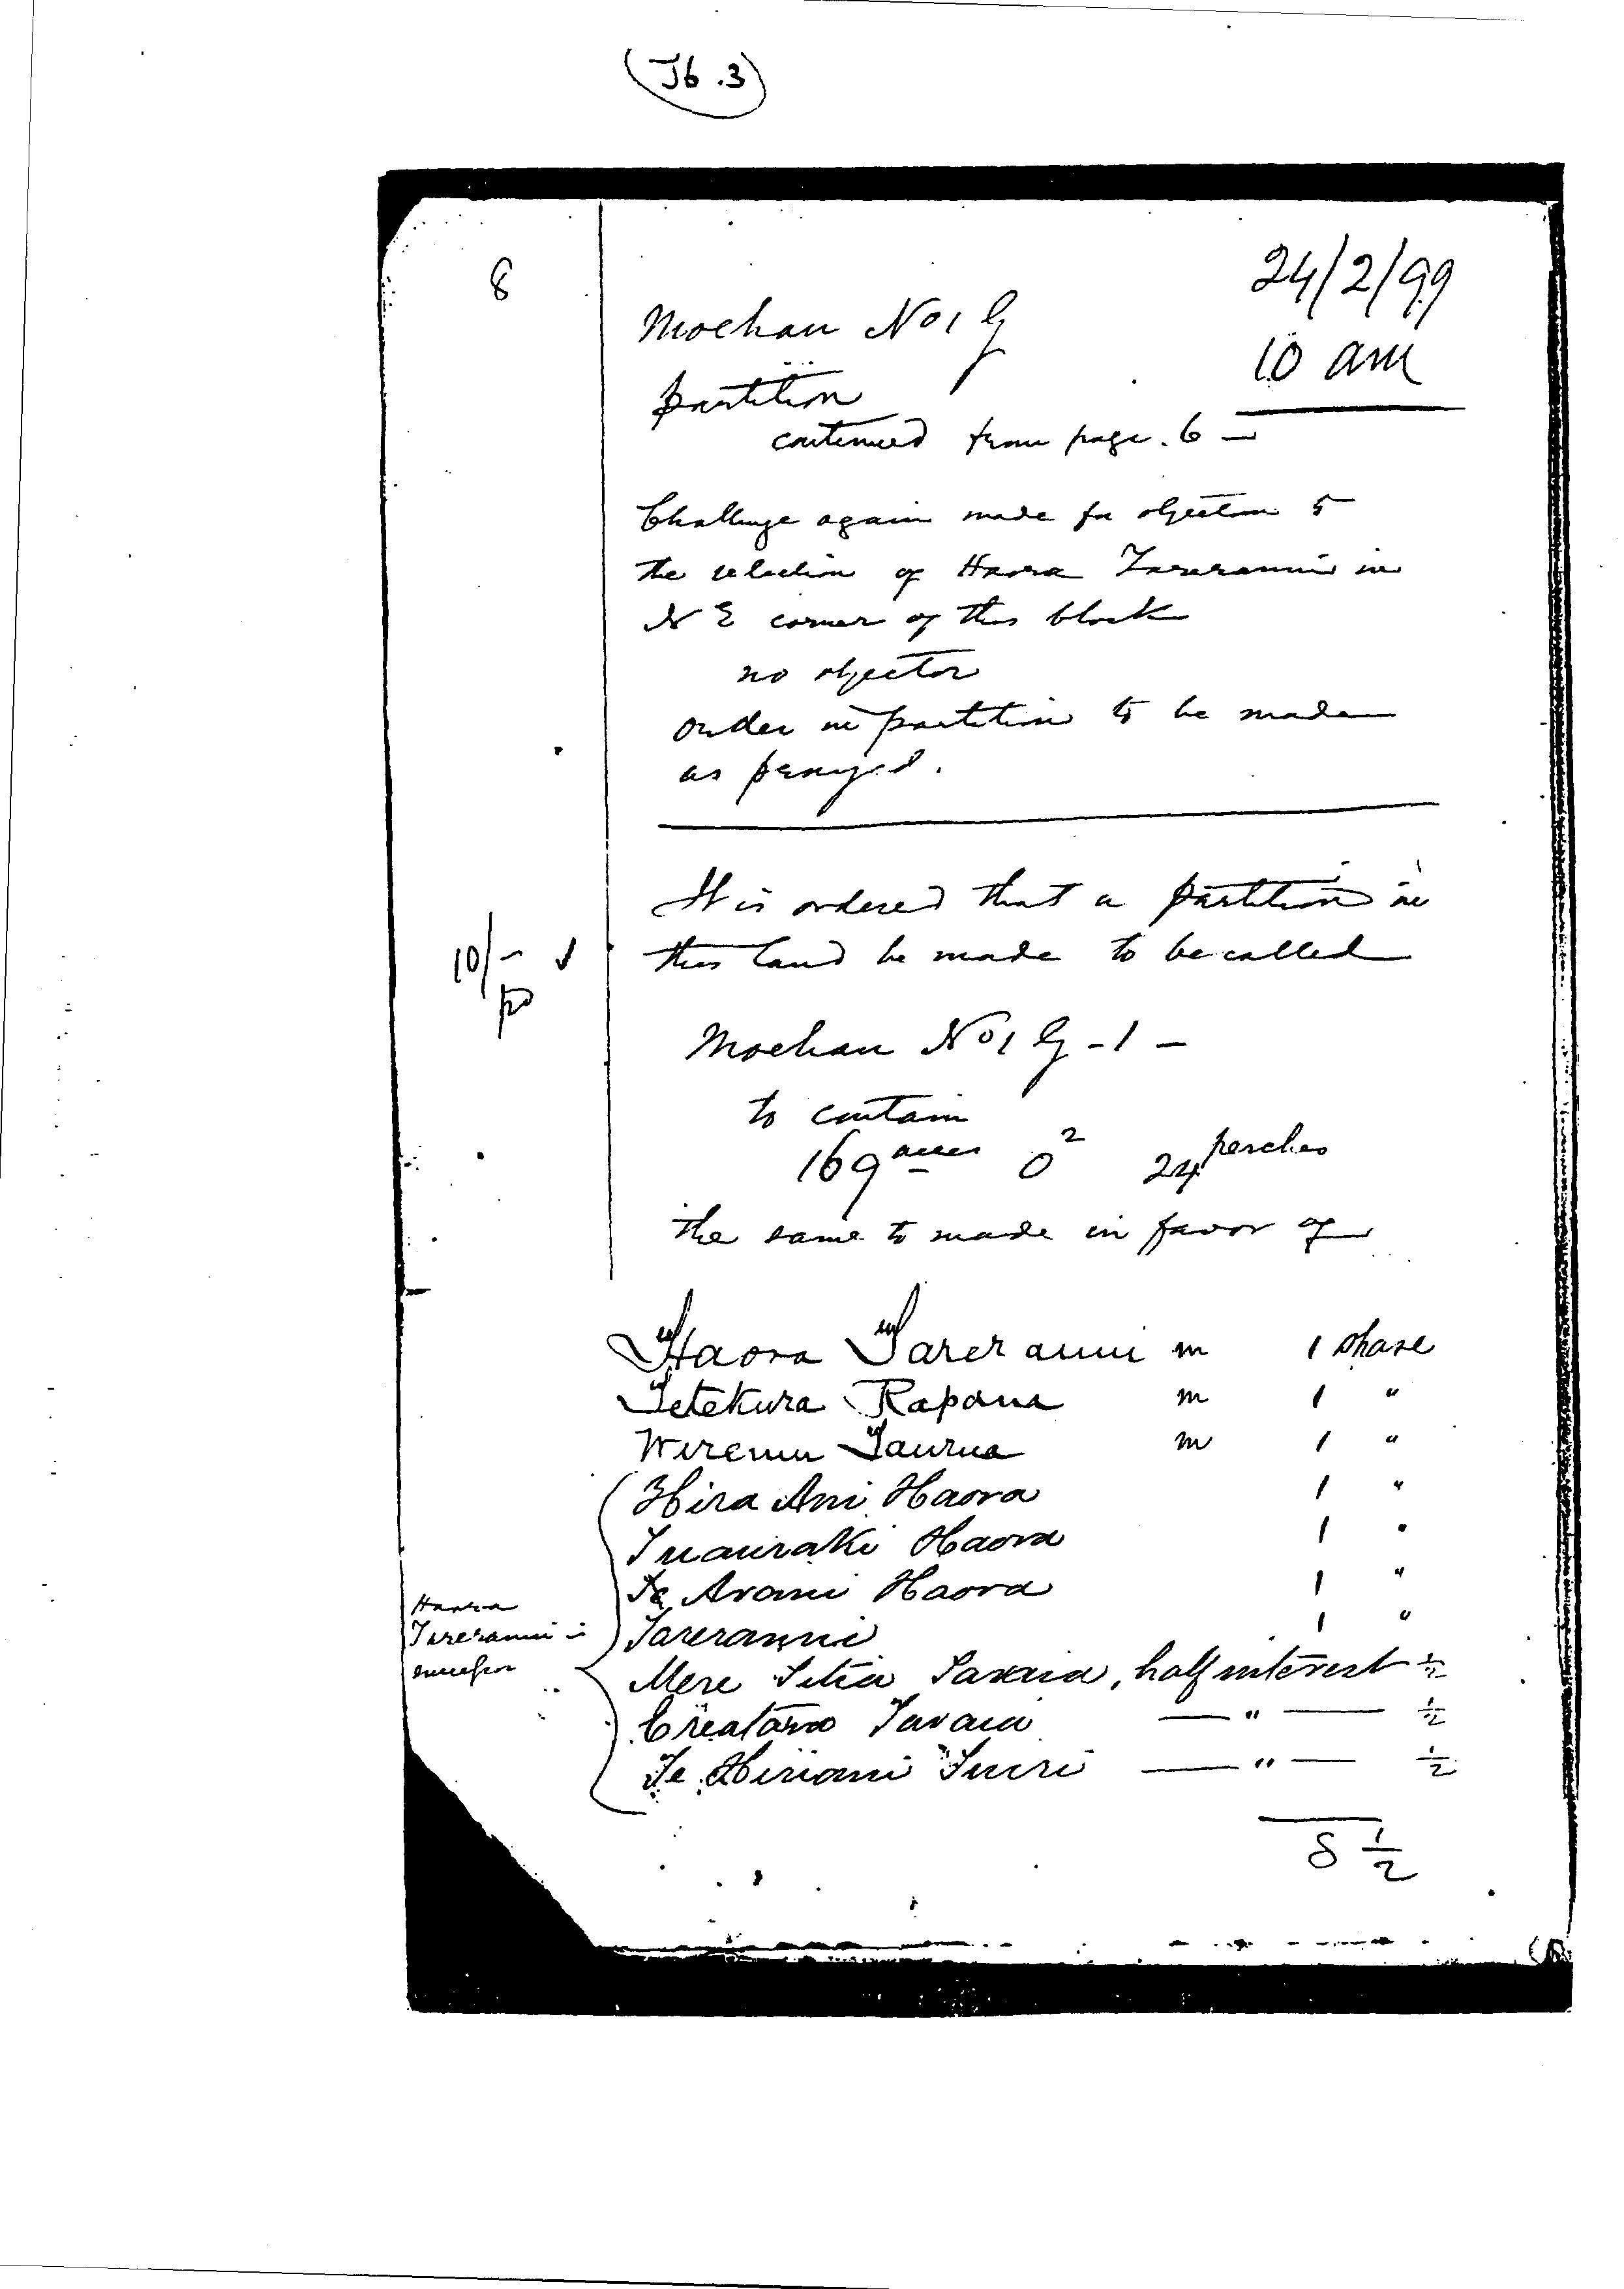 (J6.3)
8
24/2/99
Moehau No 1 G
10 am
partition
continued from page 6 —
Challenge again made for objection to
the selection of Haora Tareranui in
N E corner of this block
no objector
order in partition to be made
as prayed.
It is ordered that a partition in
10/-
this land be made to be called
Moehau No 1 G - 1 -
to contain
169 acres 0 2 24 perches
the same to made in favor of
Haora Tareranui m 1 share
Tetekura Rapana m 1 "
Wiremu Taurua m 1 "
Hira Ani Haora 1 "
Tuauraki Haora 1 "
Te Arani Haora 1 "
Haora
Tareranui is
successor
Tareranui 1 "
Mere Titia Tavaia, half interest ½
Tavaia — " — ½
Te Hiriani Tuiri — " — ½
8 ½